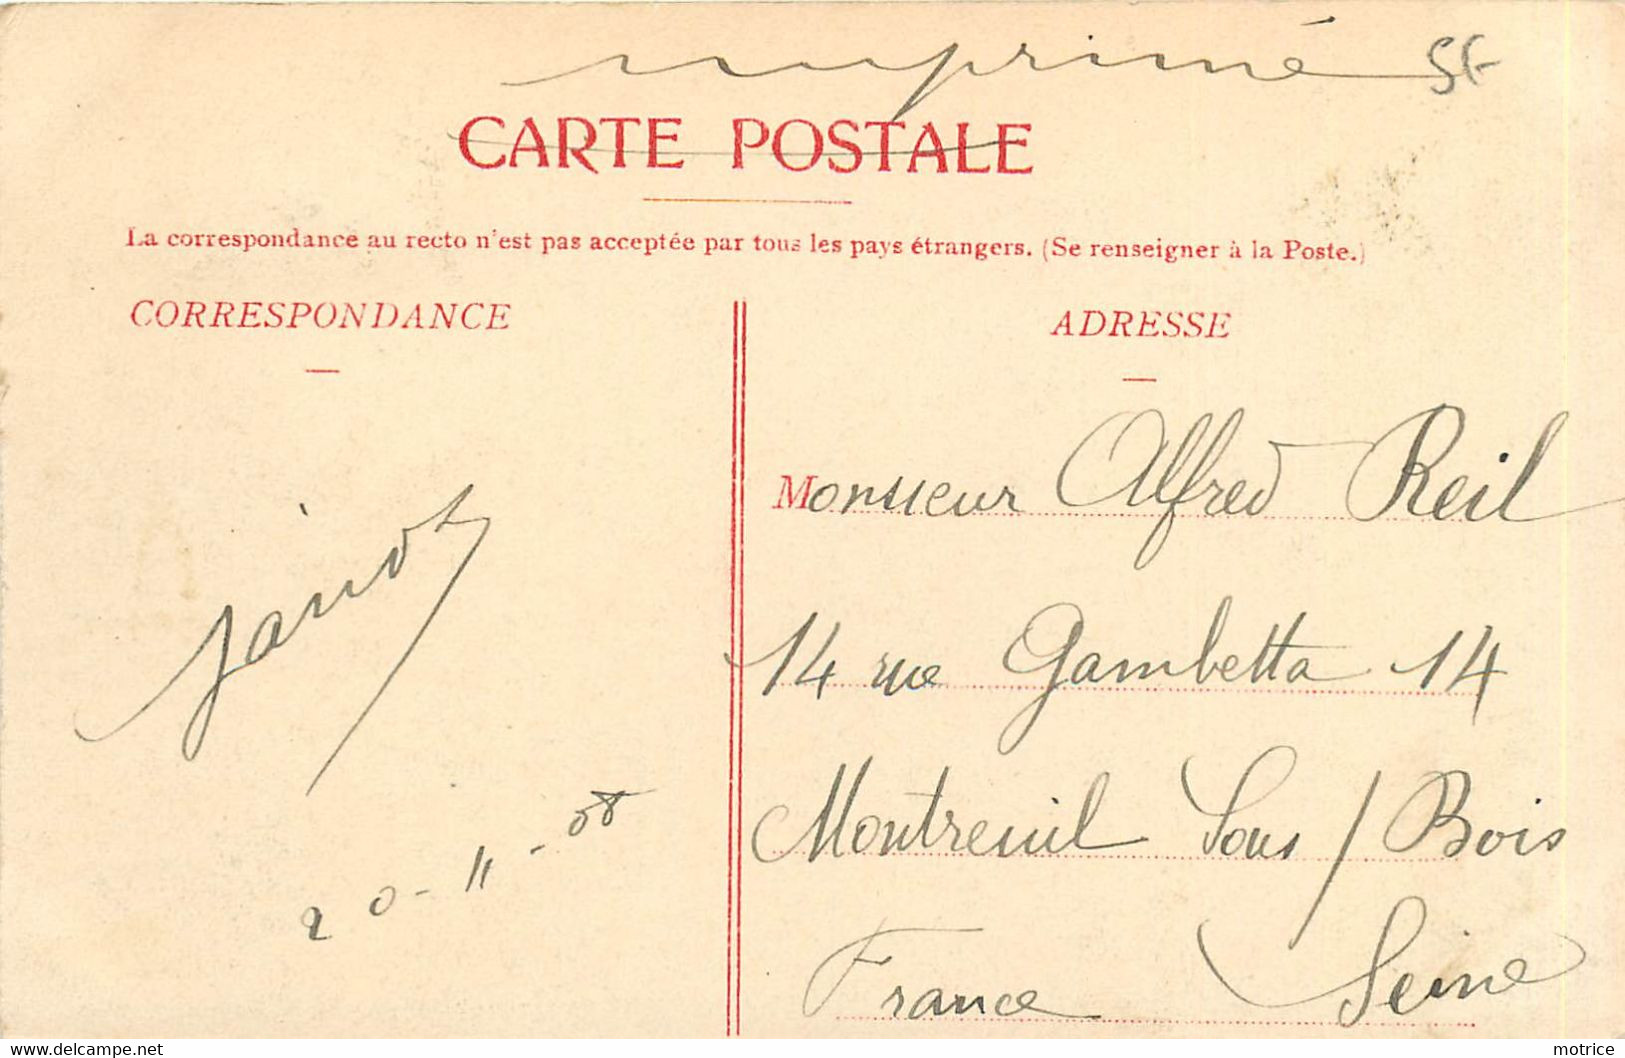 imprimé
CARTE POSTALE
La correspondance au recto n'est pas acceptée par tous les pays étrangers. (Se renseigner à la Poste.)
CORRESPONDANCE
20-11-08
ADRESSE
Monsieur Alfred Reil
14 rue Gambetta 14
Montreuil Sous / Bois
France Seine
delcampe.net
motrice